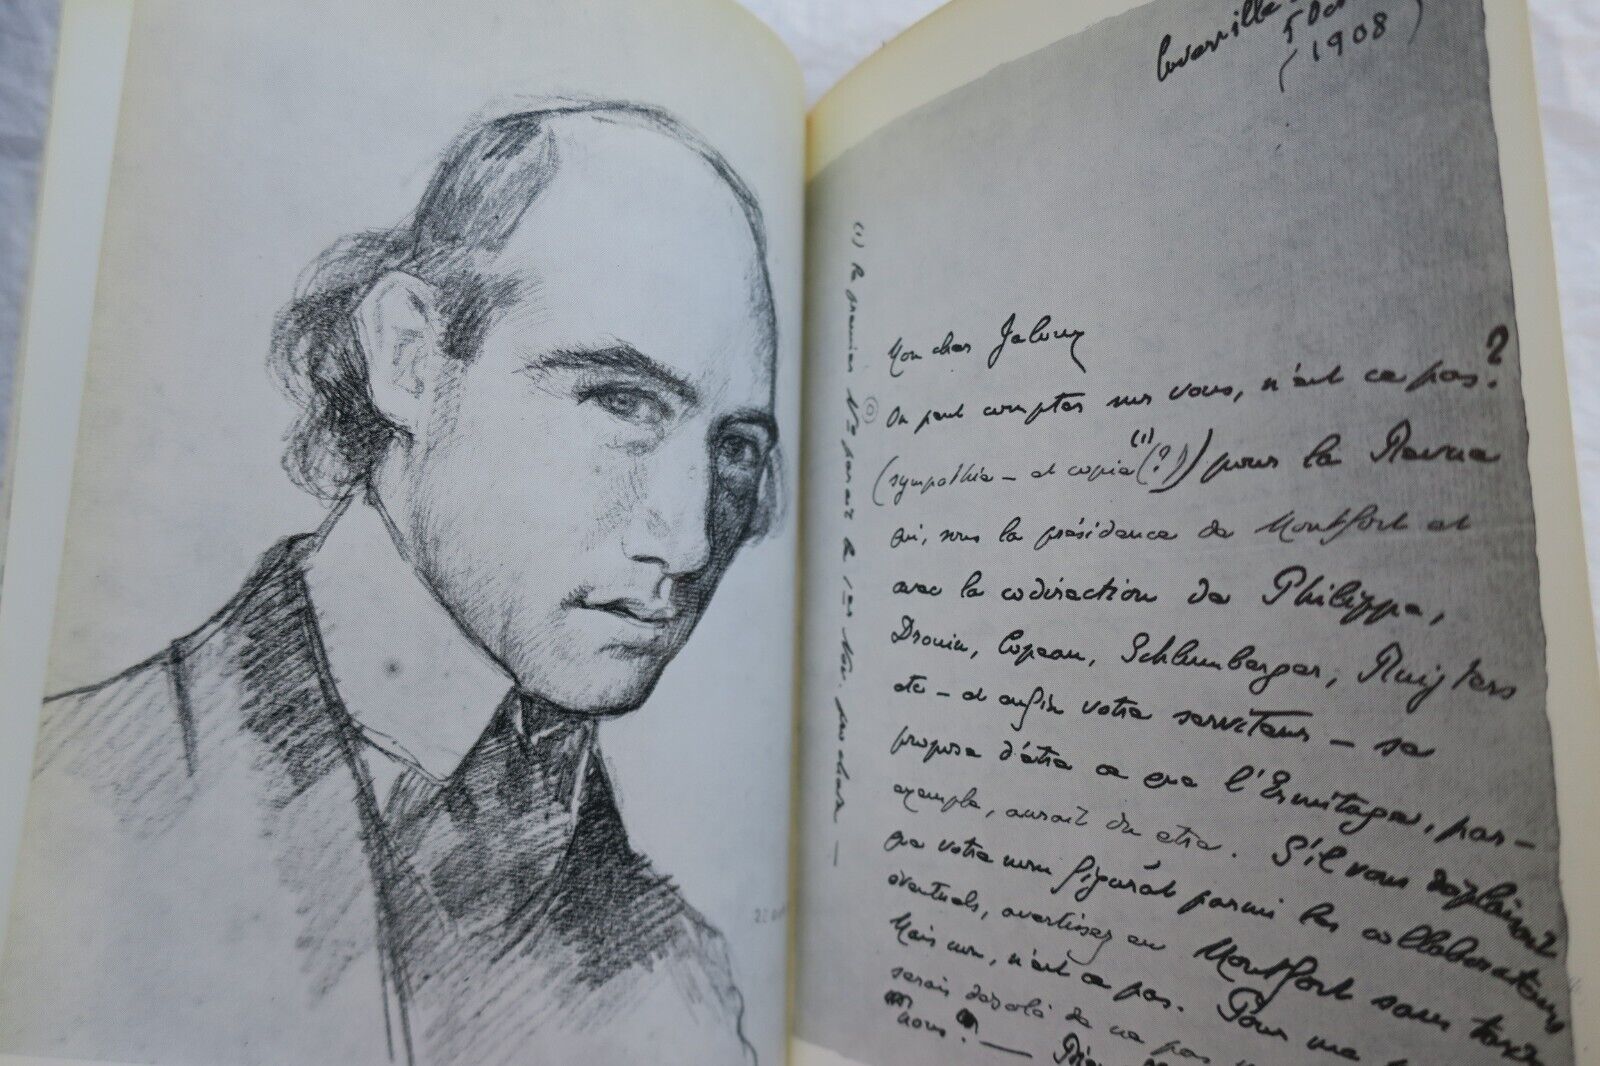 Cuverville
5 Oct
(1908)
Mon cher Jaloux
On peut compter sur vous, n'est ce pas?
(sympathie – et copie (1) (?)) pour la Revue
qui, sous la présidence de Montfort et
avec la codirection de Philippe,
Drouin, Copeau, Schlumberger, Ruijters
etc – et enfin votre serviteur – se
propose d'être ce que l'Ermitage, par-
exemple, aurait dû être. S'il vous déplaisait
que votre nom figurât parmi les collaborateurs
éventuels, avertissez en Montfort sans tarder
Mais non, n'est ce pas. Pour ma
serais désolé de ne pas
nous? –
(1) Le premier No parait le 1er Nov. prochain –
22